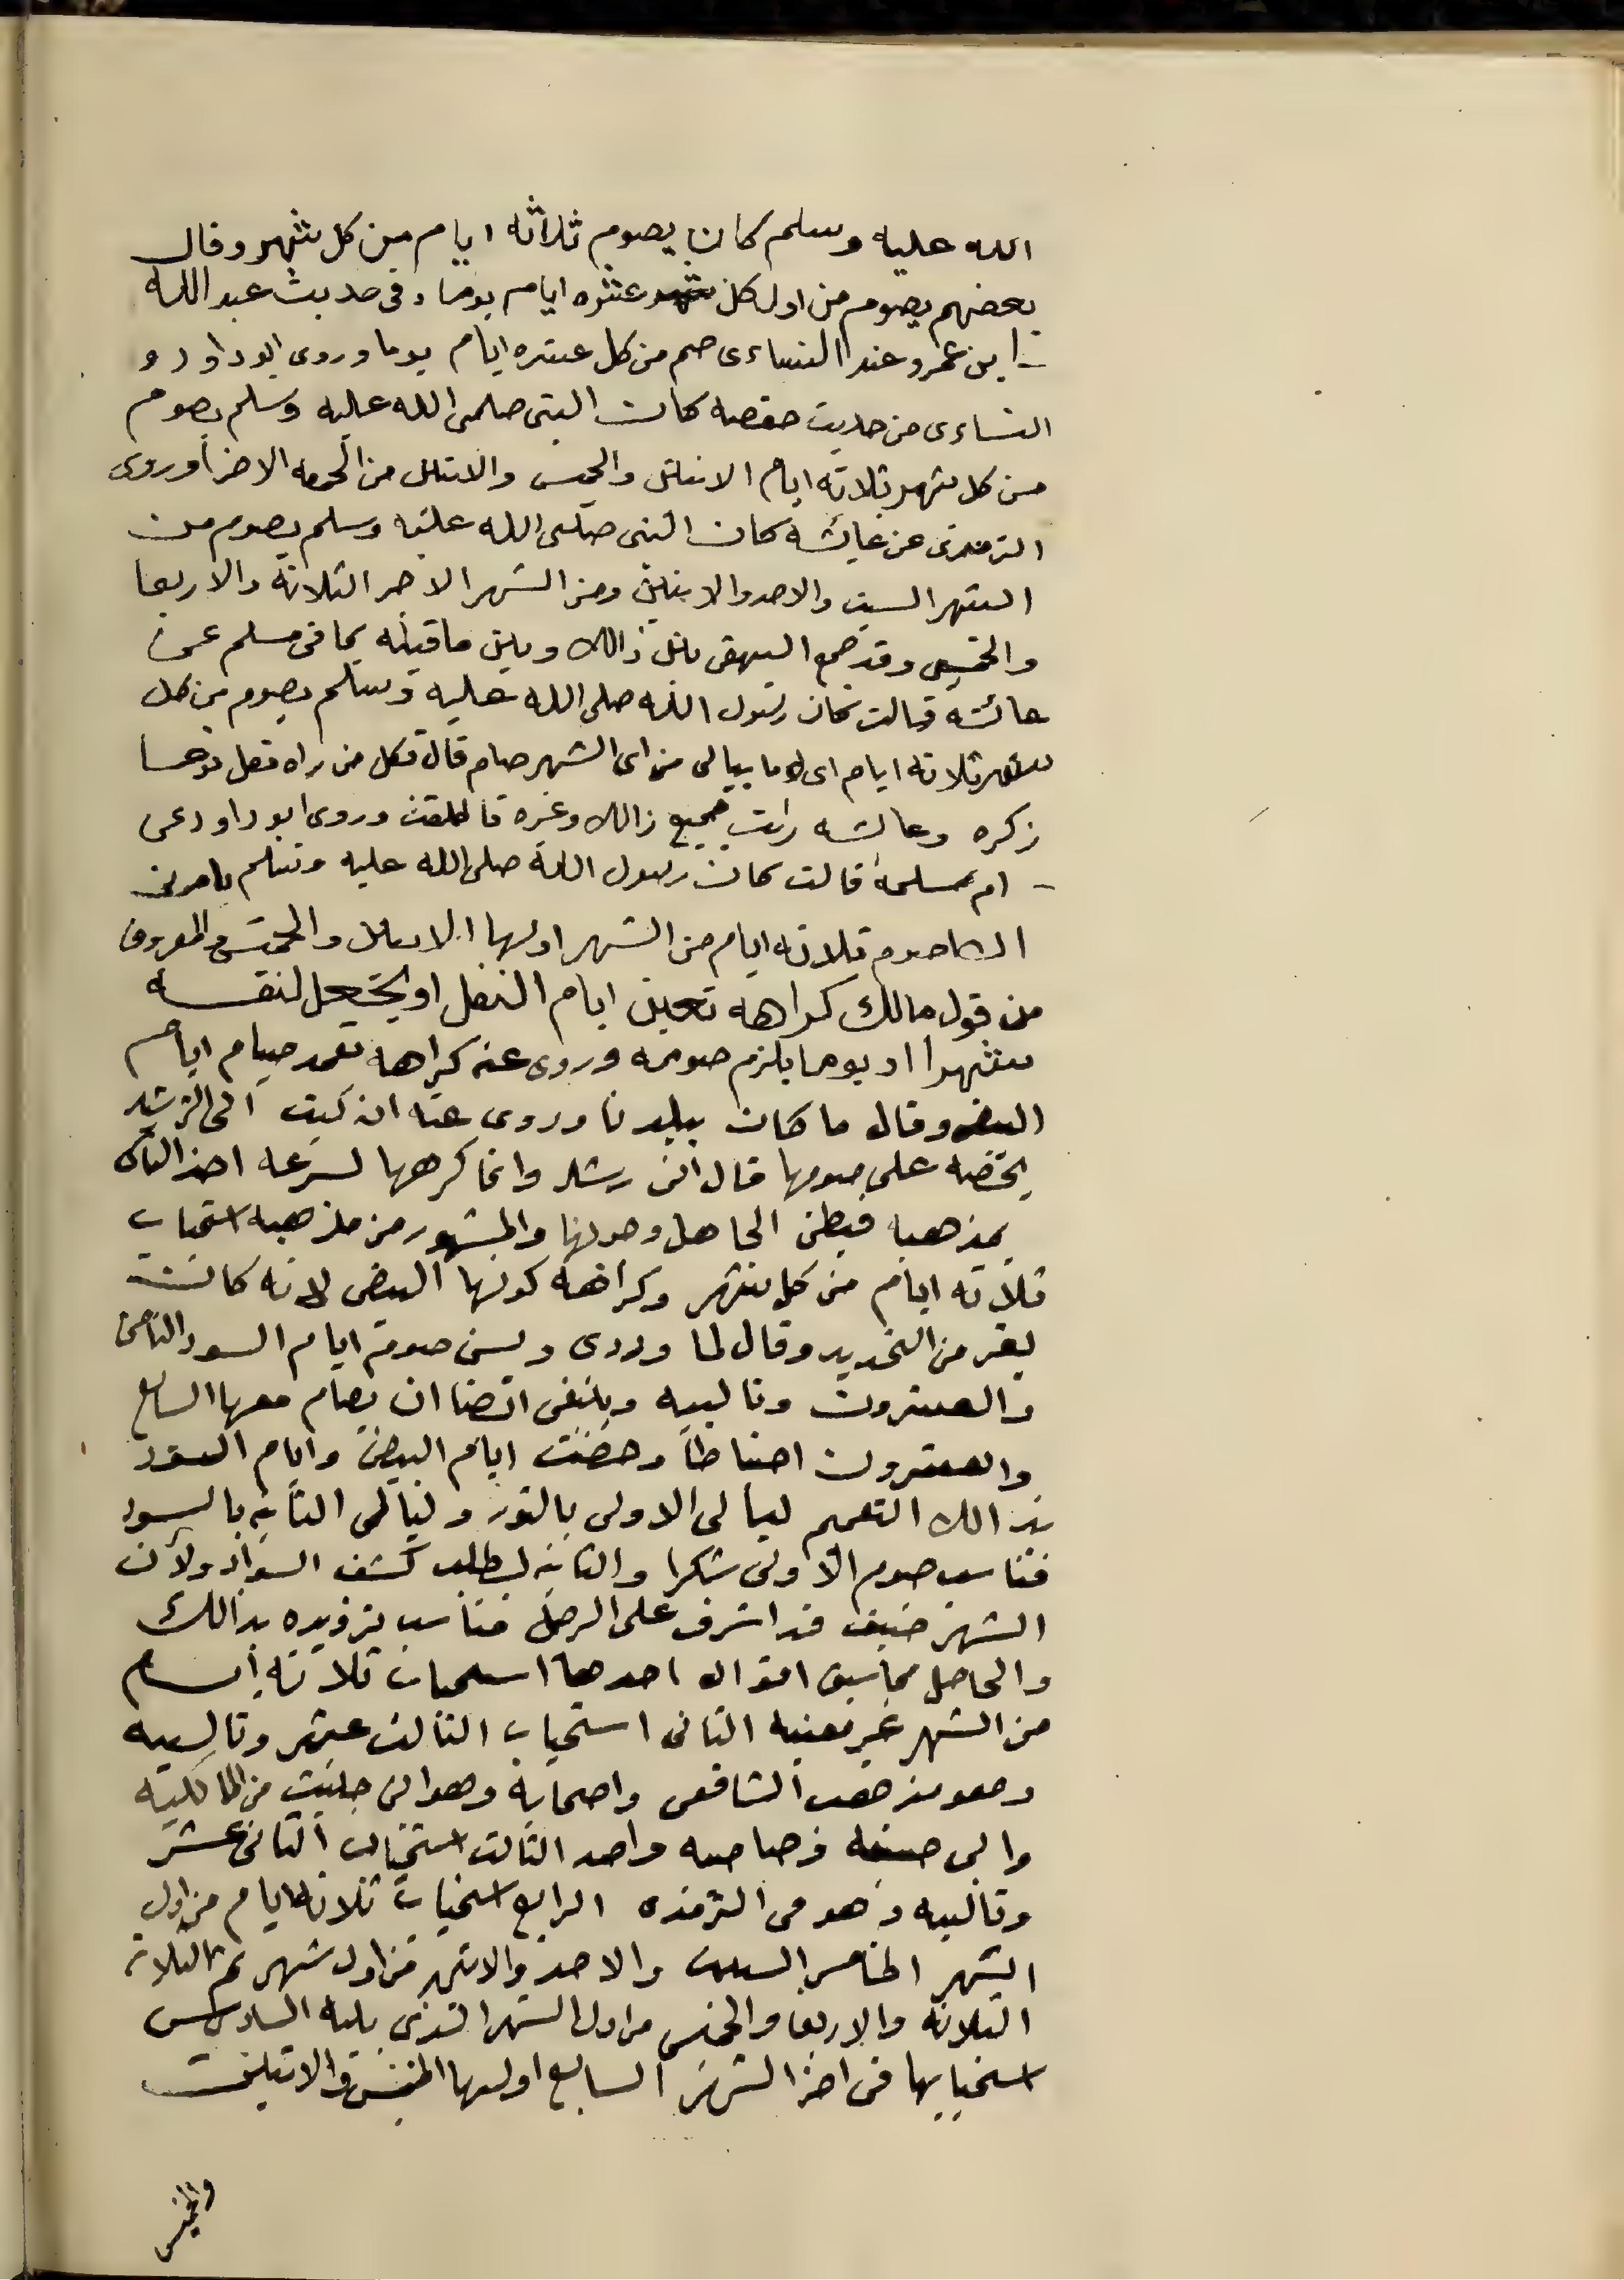 الله عليه وسلم كان يصوم ثلاثه ايام من كل شهر وقال
بعضهم يصوم من اول كل عشره ايام يوما وفى حديث عبد الله
ابن عمرو عند النساءى صم من كل عشره ايام يوما وروى ابو داود و
النساءى من حديث حفصه كان النبى صلى الله عليه وسلم يصوم
من كل شهر ثلاثه ايام الاثنين والخميس والاثنين من الجمعه الاخرا وروى
الترمذى عن عايشه كان النبى صلى الله عليه وسلم يصوم من
الشهر السبت والاحد والاثنين ومن الشهر الاخر الثلاثه والاربعا
والخميس وقد جمع البيهقى بين ذالك وبين ما قبله بما فى مسلم عن
عائشه قالت كان رسول الله صلى الله عليه وسلم يصوم من كل
شهر ثلاثه ايام ما يبالى من اى الشهر صام قال فكل من راه فعل نوعا
ذكره وعائشه رات جميع ذالك وغيره فاطلقت وروى ابو داود عن
ام سلمه قالت كان رسول الله صلى الله عليه وسلم يامرنى
ان اصوم ثلاثه ايام من الشهر اولها الاثنين والخميس والمعروف
من قول مالك كراهه تعيين ايام النفل او يجعل لنفسه
شهرا او يوما يلزم صومه وروى عنه كراهه تعمد صيام ايام
البيض وقال ما كان ببلدنا وروى عنه انه كتب الى الرشيد
يحضه على صومها قال ابن رشد وانما كرهها لسرعه اخذ الناس
بمذهبه فيظن الجاهل وجوبها والمشهور من مذهبه استحباب
ثلاثه ايام من كل شهر وكراهه كونها البيض لانه كان
يفر من التحديد وقال لما وردى ويسن صوم ايام السود الثامن
والعشرون وتالييه وينبغى ايضا ان يصام معها السابع
والعشرون احتياطا وخصت ايام البيض وايام السود
بذالك لتعميم ليالى الاولى بالنور وليالى الثانيه بالسود
فناسب صوم الاولى شكرا والثانيه لطلب كشف السواد ولان
الشهر ضيف قد اشرف على الرحيل فناسب تزويده بذالك
والحاصل مما سبق اقوال احدها استحباب ثلاثه ايام
من الشهر غير معينه الثانى استحباب الثالث عشر وتالييه
وهو مذهب الشافعى واصحابه وهو ابن حبيب من المالكيه
وابى حنيفه وصاحبيه واحمد الثالث استحباب الثانى عشر
وتالييه وهو فى الترمذى الرابع استحباب ثلاثه ايام من اول
الشهر الخامس السبت والاحد والاثنين من اول شهر ثم الثلاثه
الثلاثه والاربعا والخميس من اول الشهر الذى يليه السادس
استحبابها فى اخر الشهر السابع اولها الخميس والاثنين
والخميس